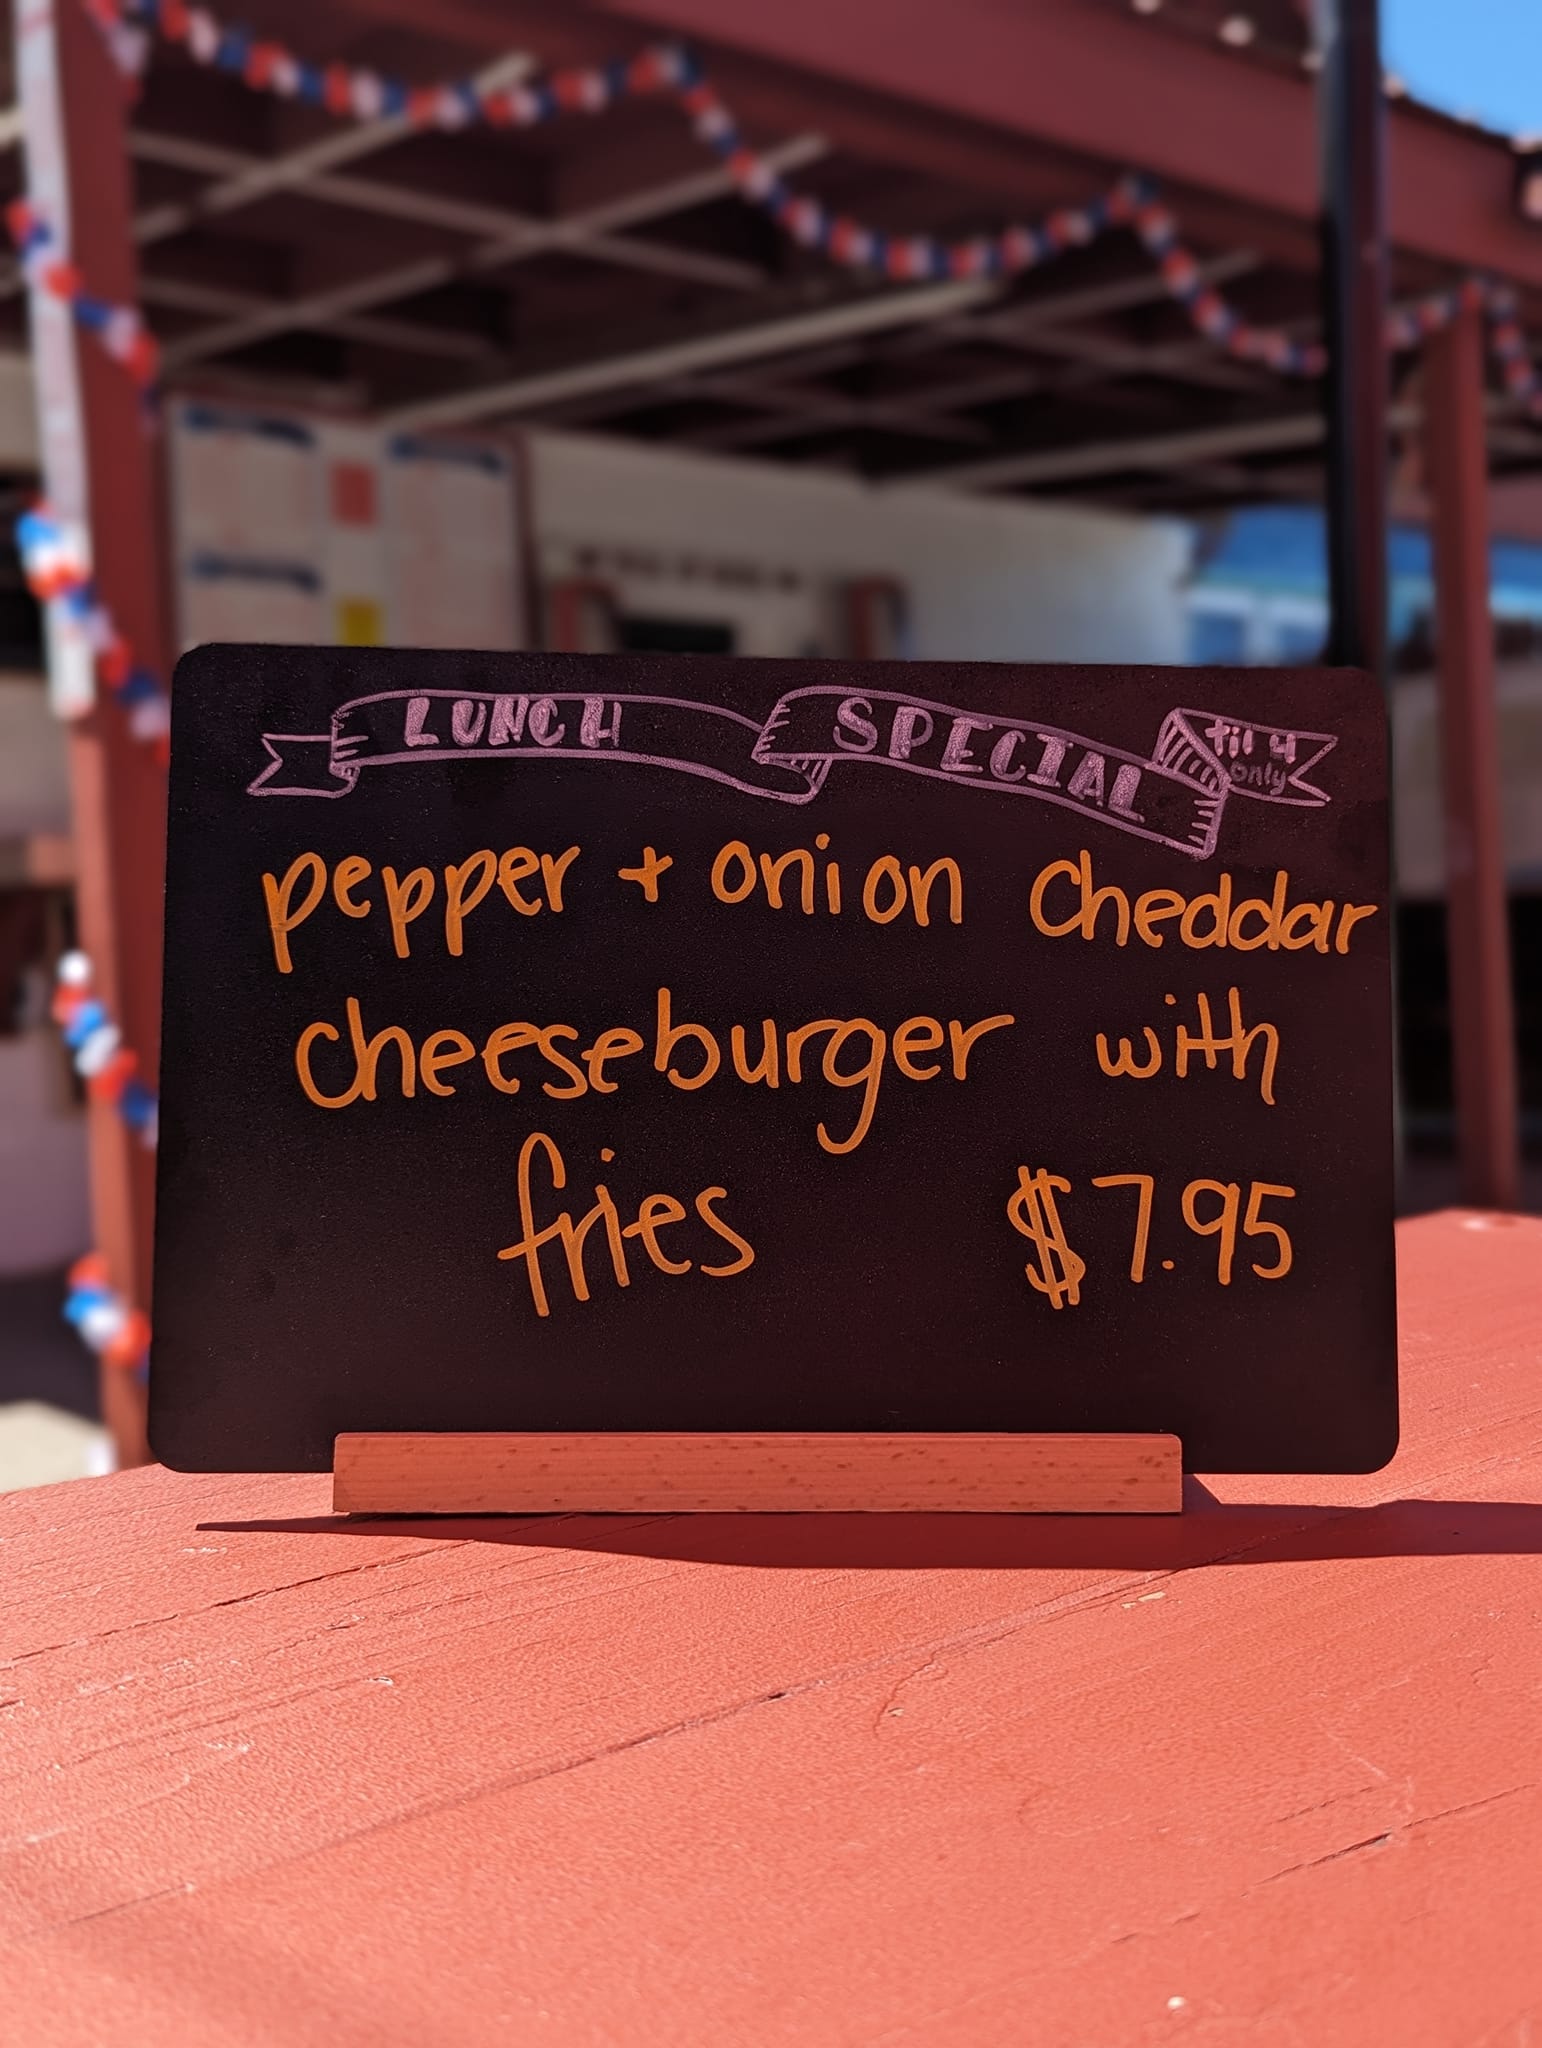 LUNCH SPECIAL til 4 only
pepper + onion Cheddar
cheeseburger with
fries $7.95